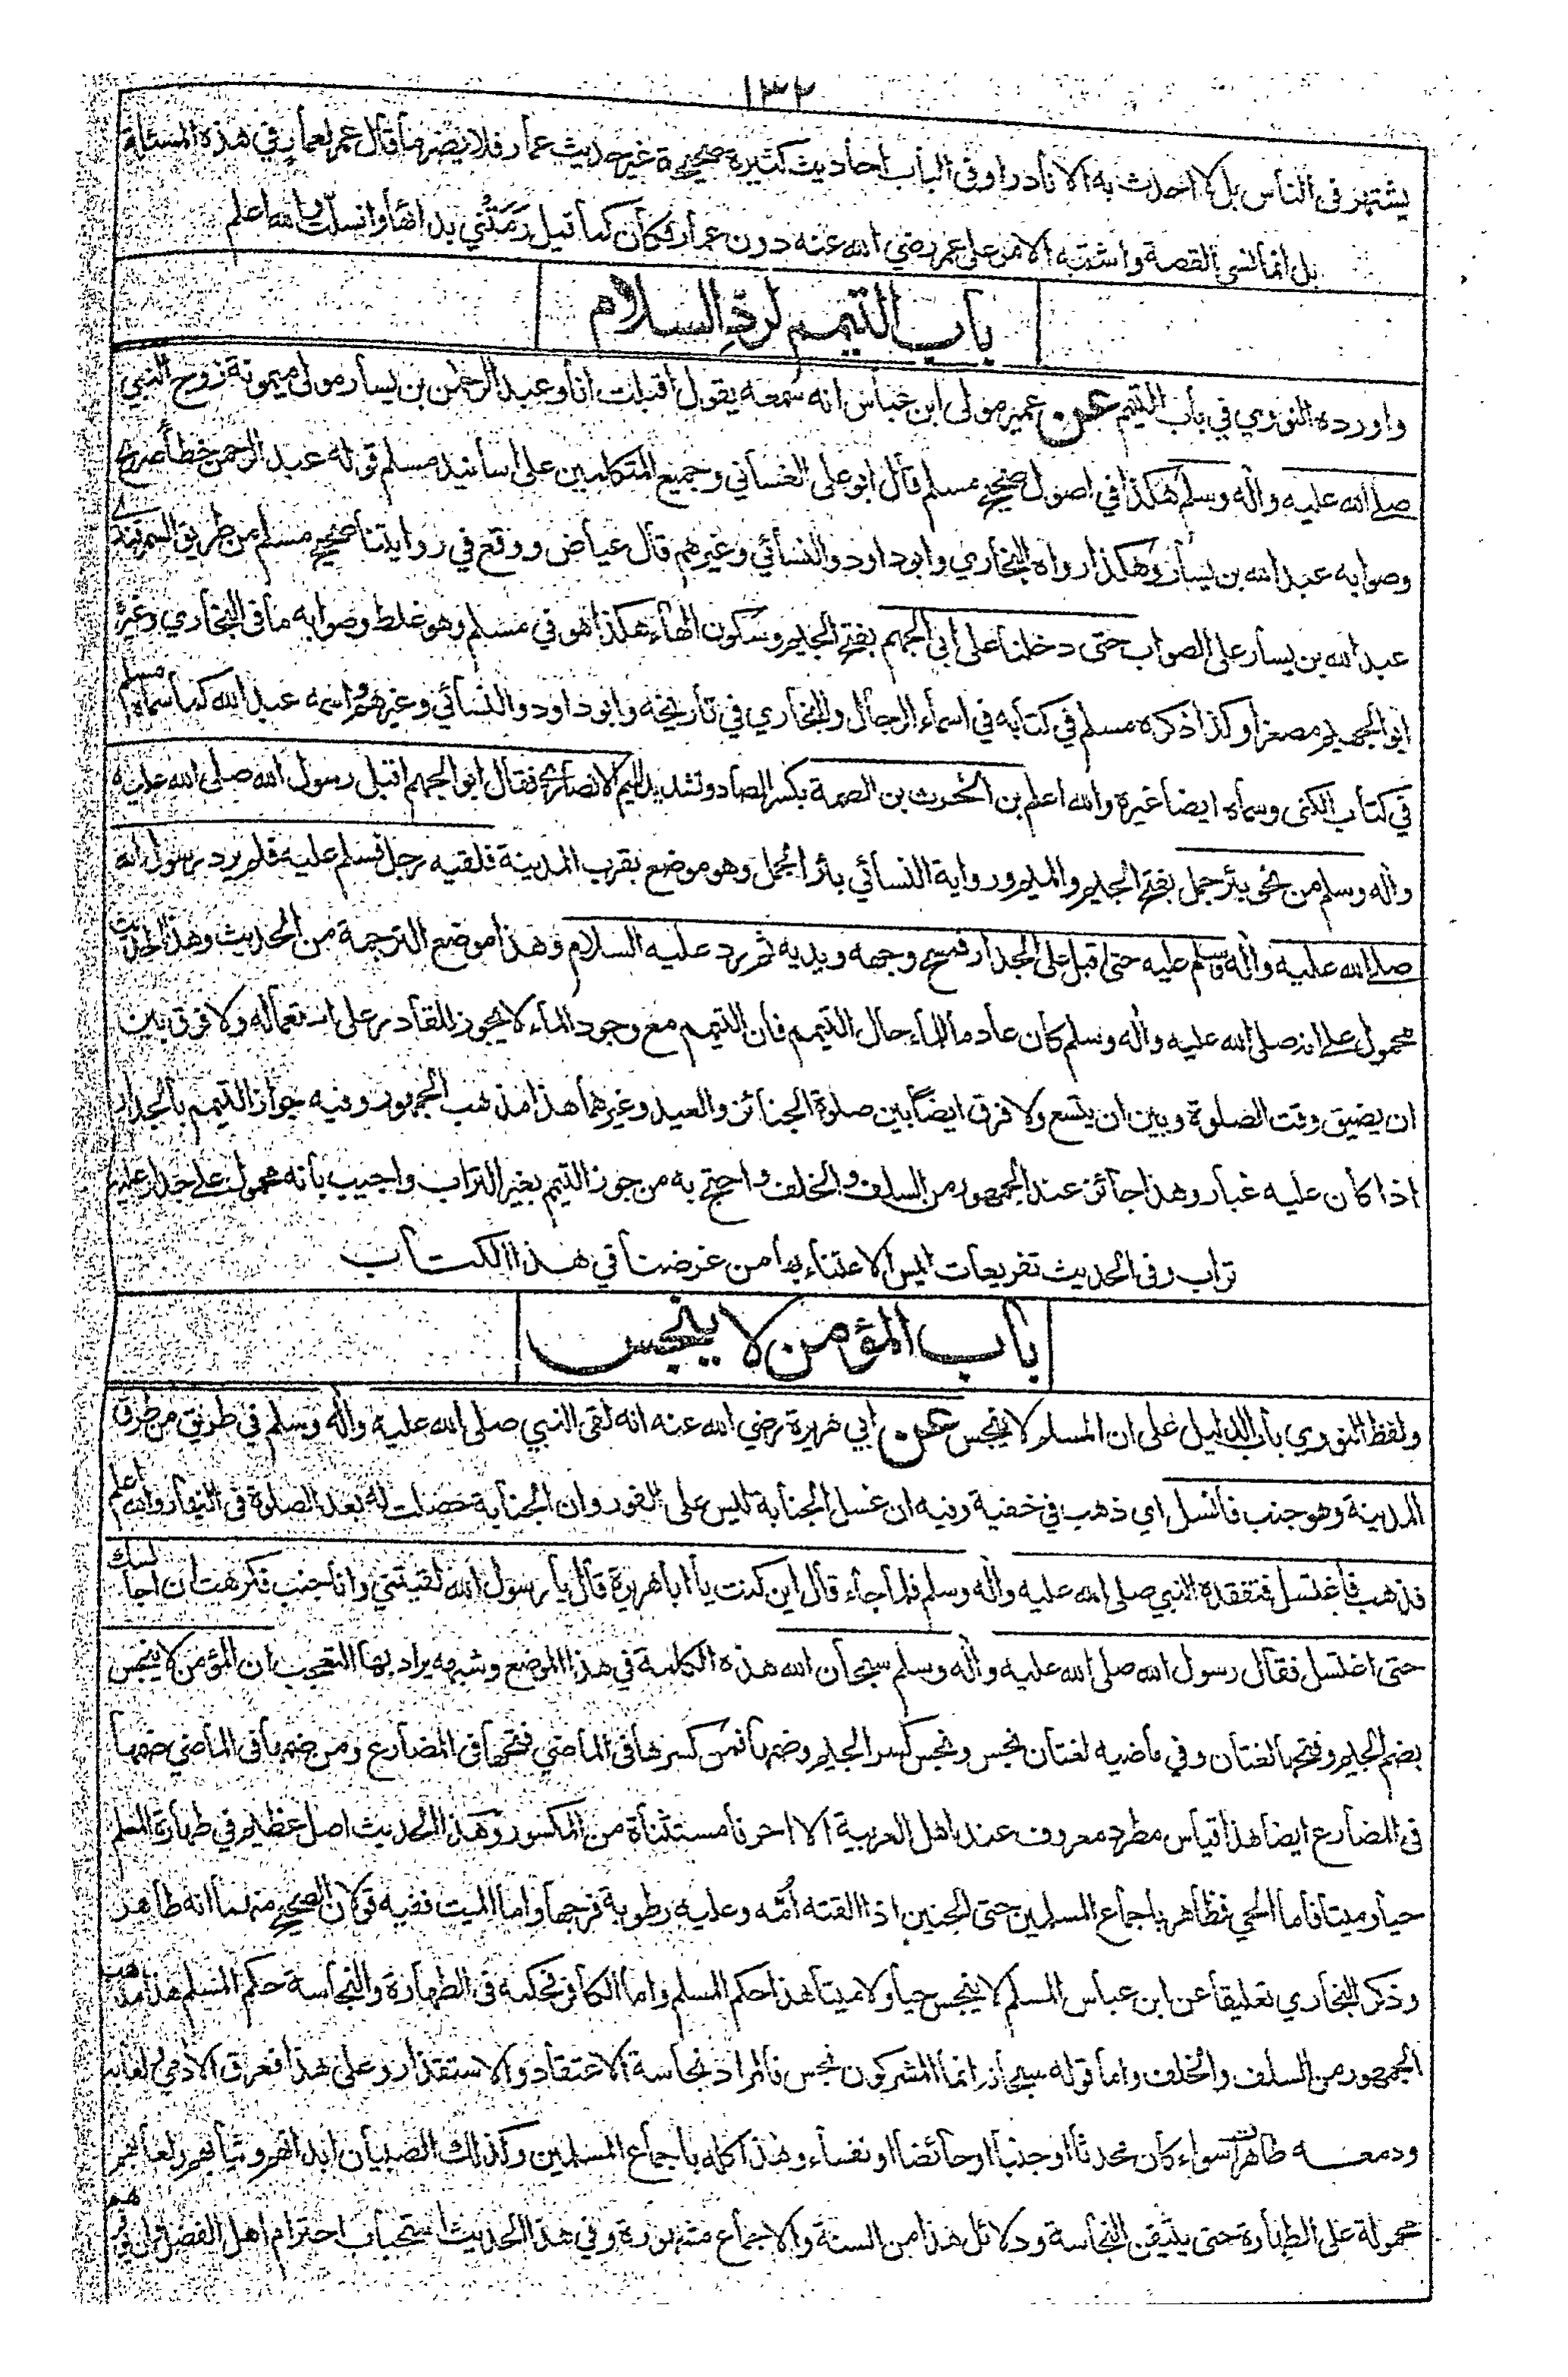 ١٣٢
يشتهر في الناس بل لا احدث به الا نادرا وفي الباب احاديث كثيرة صحيحة غير حديث عمار فلا يضر ما قال عمر لعمار في هذه المسئلة
بل انما نسي القصة واشتبه الامر على عمر رضي الله عنه دون عمار فكان كما قيل رمتني بدائها وانسلت والله اعلم
باب التيمم لرد السلام
واورده النووي في باب التيمم عن عمير مولى ابن عباس انه سمعه يقول اقبلت انا وعبد الرحمن بن يسار مولى ميمونة زوج النبي
صلى الله عليه واٰله وسلم هكذا في اصول صحيح مسلم قال ابو علي الغساني وجميع المتكلمين على اسانيد مسلم قوله عبد الرحمن خطأ صريح
وصوابه عبد الله بن يسار وهكذا رواه البخاري وابو داود والنسائي وغيرهم قال عياض ووقع في روايتنا صحيح مسلم من طريق السمرقندي
عبد الله بن يسار على الصواب حتى دخلنا على ابي الجهم بفتح الجيم وسكون الهاء هكذا هو في مسلم وهو غلط وصوابه ما في البخاري وغيره
ابو الجهيم مصغرا وكذا ذكره مسلم في كتابه في اسماء الرجال والبخاري في تاريخه وابو داود والنسائي وغيرهم واسمه عبد الله كما سماه مسلم
في كتاب الكنى وسماه ايضا غيره والله اعلم بن الحٰرث بن الصمة بكسر الصاد وتشديد الميم الانصاري فقال ابو الجهم اقبل رسول الله صلى الله عليه
واٰله وسلم من نحو بئر جمل بفتح الجيم والميم ورواية النسائي بئر الجمل وهو موضع بقرب المدينة فلقيه رجل فسلم عليه فلم يرد رسول الله
صلى الله عليه واٰله وسلم عليه حتى اقبل على الجدار فمسح وجهه ويديه ثم رد عليه السلام وهذا موضع الترجمة من الحديث وهذا الحديث
محمول على انه صلى الله عليه واٰله وسلم كان عادما للماء حال التيمم فان التيمم مع وجود الماء لا يجوز للقادر على استعماله ولا فرق بين
ان يضيق وقت الصلوة وبين ان يتسع ولا فرق ايضا بين صلوة الجنائز والعيد وغيرهما هذا مذهب الجمهور وفيه جواز التيمم بالجدار
اذا كان عليه غبار وهذا جائز عند الجمهور من السلف والخلف واحتج به من جوز التيمم بغير التراب واجيب بانه محمول على جدار عليه
تراب وفي الحديث تفريعات ليس الاعتناء بها من غرضنا في هذا الكتاب
باب المؤمن لا ينجس
ولفظ النووي باب الدليل على ان المسلم لا ينجس عن ابي هريرة رضي الله عنه انه لقي النبي صلى الله عليه واٰله وسلم في طريق من طرق
المدينة وهو جنب فانسل اي ذهب في خفية وفيه ان غسل الجنابة ليس على الفور وان الجنابة حصلت له بعد الصلوة في النهار والله اعلم
فذهب فاغتسل فتفقده النبي صلى الله عليه واٰله وسلم فلما جاء قال اين كنت يا ابا هريرة قال يا رسول الله لقيتني وانا جنب فكرهت ان اجالسك
حتى اغتسل فقال رسول الله صلى الله عليه واٰله وسلم سبحان الله هذه الكلمة في هذا الموضع وشبهه يراد بها التعجب ان المؤمن لا ينجس
بضم الجيم وفتحها لغتان وفي ماضيه لغتان نجس ونجس كسر الجيم وضمها فمن كسرها في الماضي فتحها في المضارع ومن ضمها في الماضي ضمها
في المضارع ايضا هذا قياس مطرد معروف عند اهل العربية الا احرفا مستثناة من المكسور وهذا الحديث اصل عظيم في طهارة المسلم
حيا وميتا فاما الحي فطاهر باجماع المسلمين حتى الجنين اذا القته اُمّه وعليه رطوبة فرجها واما الميت ففيه قولان الصحيح منهما انه طاهر
وذكر البخاري تعليقا عن ابن عباس المسلم لا ينجس حيا ولا ميتا هذا حكم المسلم واما الكافر فحكمه في الطهارة والنجاسة حكم المسلم هذا مذهب
الجمهور من السلف والخلف واما قوله سبحانه انما المشركون نجس فالمراد نجاسة الاعتقاد والاستقذار وعلى هذا فعرق الادمي ولعابه
ودمعه طاهرات سواء كان محدثا او جنبا او حائضا او نفساء وهذا كله باجماع المسلمين وكذلك الصبيان ابدانهم وثيابهم ولعابهم
محمولة على الطهارة حتى يتيقن النجاسة ودلائل هذا من السنة والاجماع مشهورة وفي هذا الحديث استحباب احترام اهل الفضل وان يوقرهم